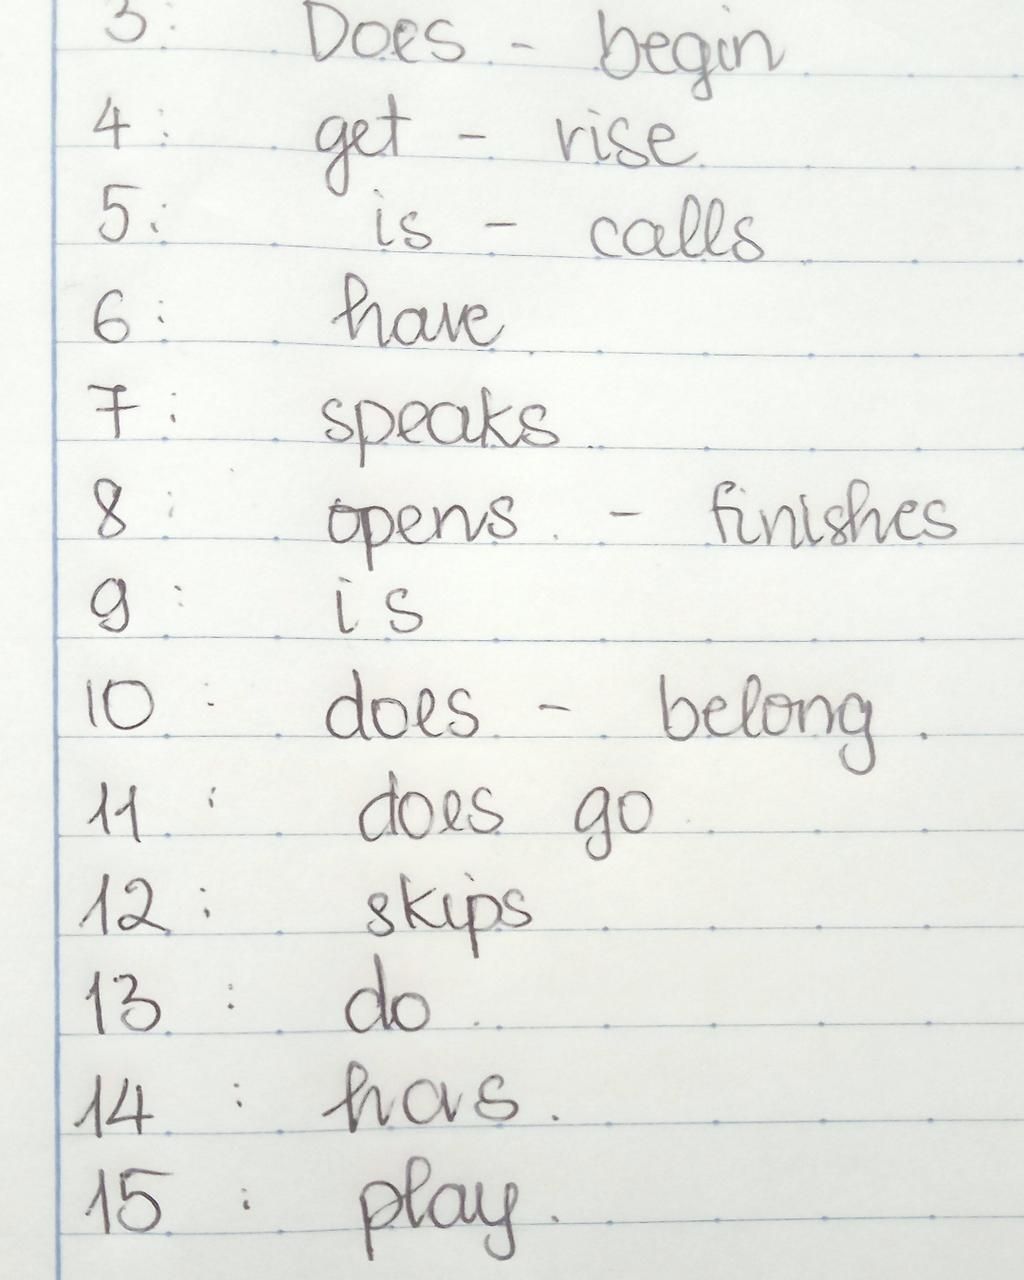 3: Does - begin
4: get - rise
5: is - calls
6: have
7: speaks
8: opens. - finishes
9: is
10: does - belong.
11: does go
12: skips
13: do.
14: has.
15: play.